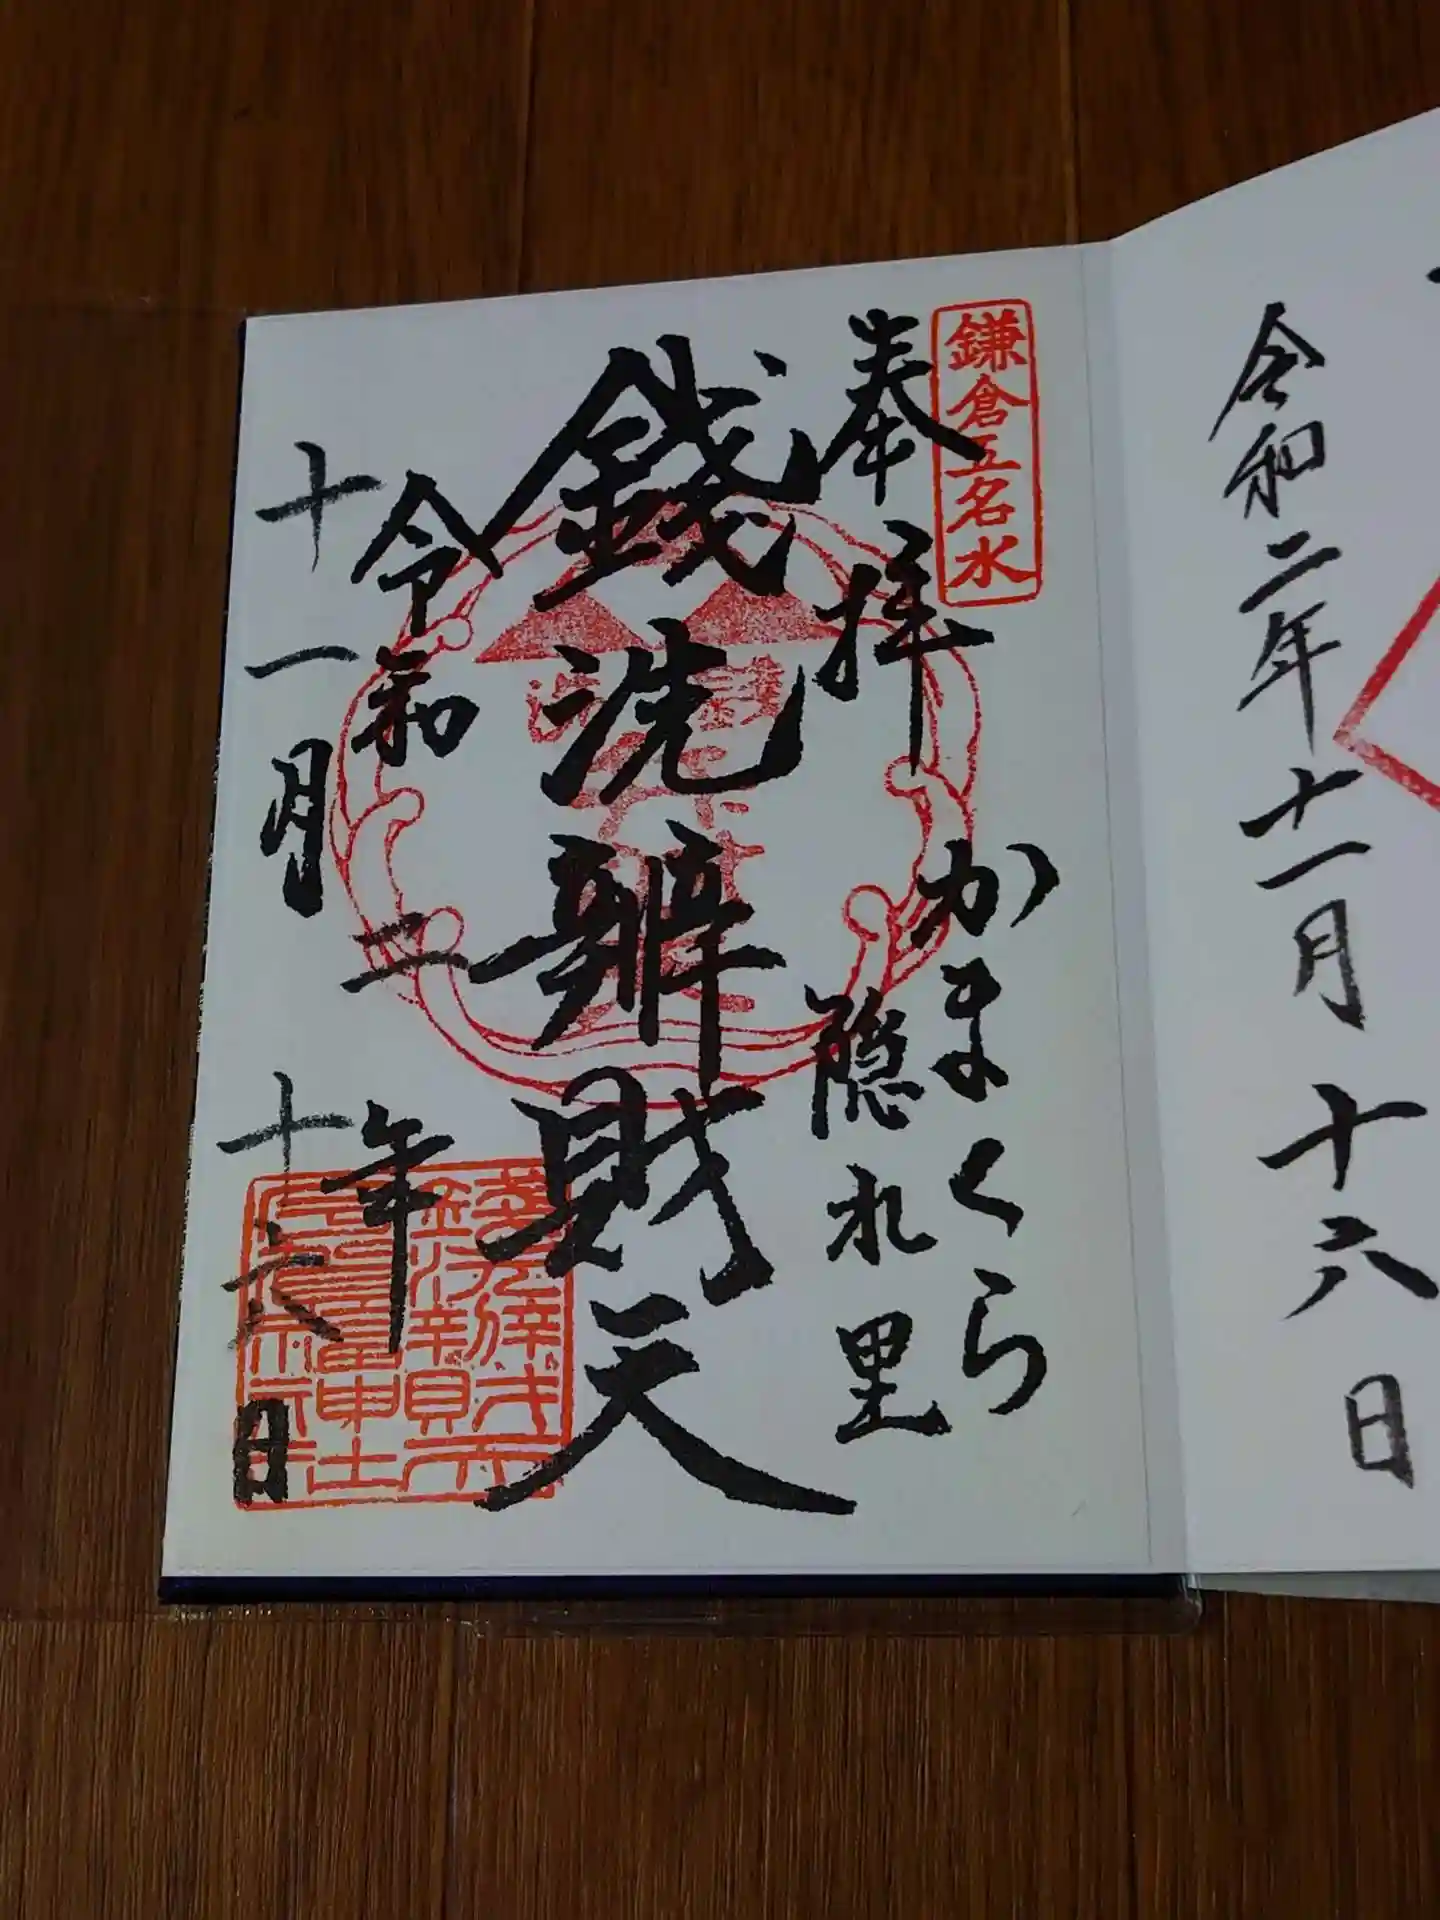 令和二年十一月十六日
鎌倉五名水
奉拝
かまくら
隠れ里
銭洗辨財天
令和二年
十一月十六日